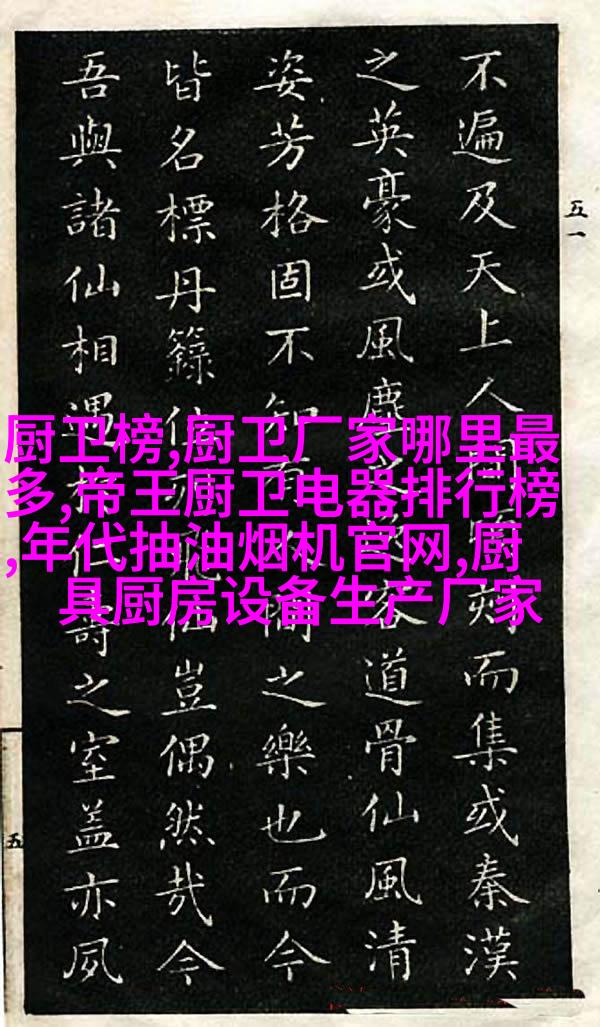 不遍及天上人間刻而集或秦漢
之英豪或風塵道骨仙風清
姿芳格固不知有間之樂也而今
皆名標丹籙位仙豈偶然哉今
吾與諸仙相遇於仁壽之室蓋亦夙
五一
五
厨卫榜,厨卫厂家哪里最
多,帝王厨卫电器排行榜
,年代抽油烟机官网,厨
具厨房设备生产厂家